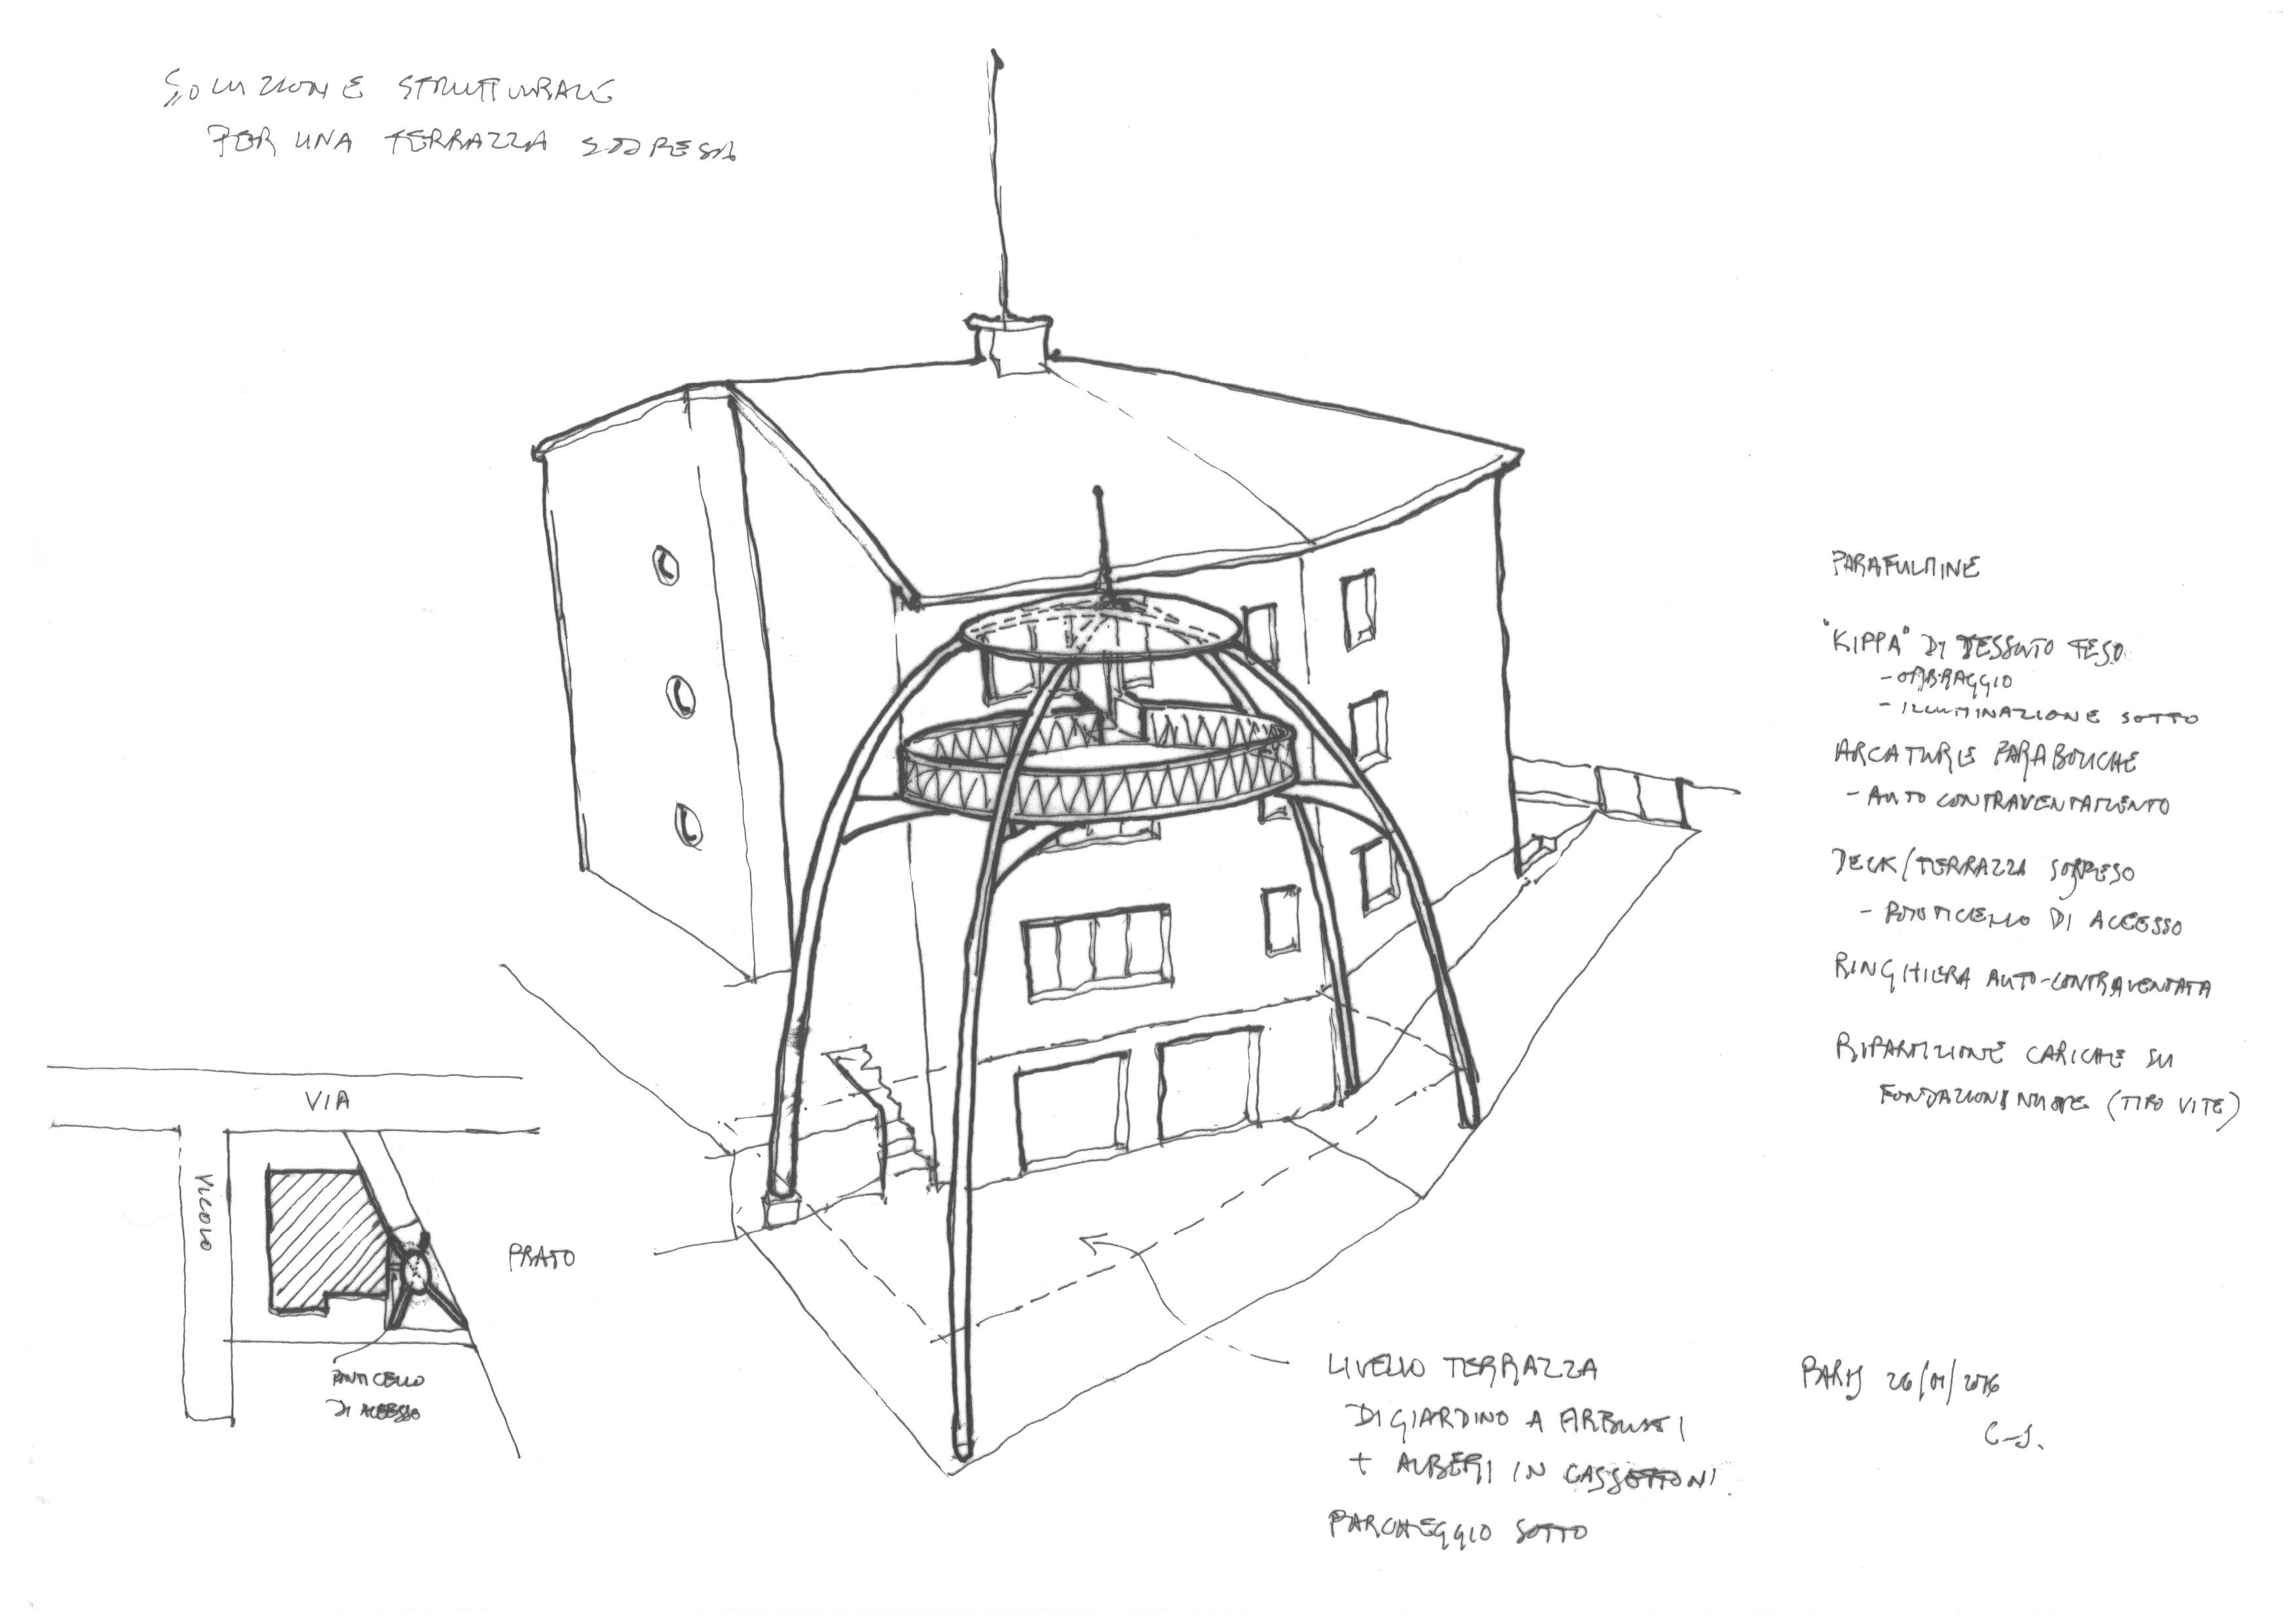 SOLUZIONE STRUTTURALE
PER UNA TERRAZZA SOSPESA
PARAFULMINE
"KIPPA" DI TESSUTO TESO
- OMBRAGGIO
- ILLUMINAZIONE SOTTO
ARCATURE PARABOLICHE
- AUTO CONTRAVENTAMENTO
DECK/TERRAZZA SOSPESO
- PONTICELLO DI ACCESSO
RINGHIERA AUTO-CONTRAVENTATA
RIPARTIZIONE CARICHE SU
FONDAZIONI NUOVE (TIPO VITE)
VIA
VICOLO
PRATO
PONTICELLO
DI ACCESSO
LIVELLO TERRAZZA
DI GIARDINO A ARBUSTI
+ ALBERI IN CASSETTONI
PARCHEGGIO SOTTO
PARIS 26/01/2016
C-J.